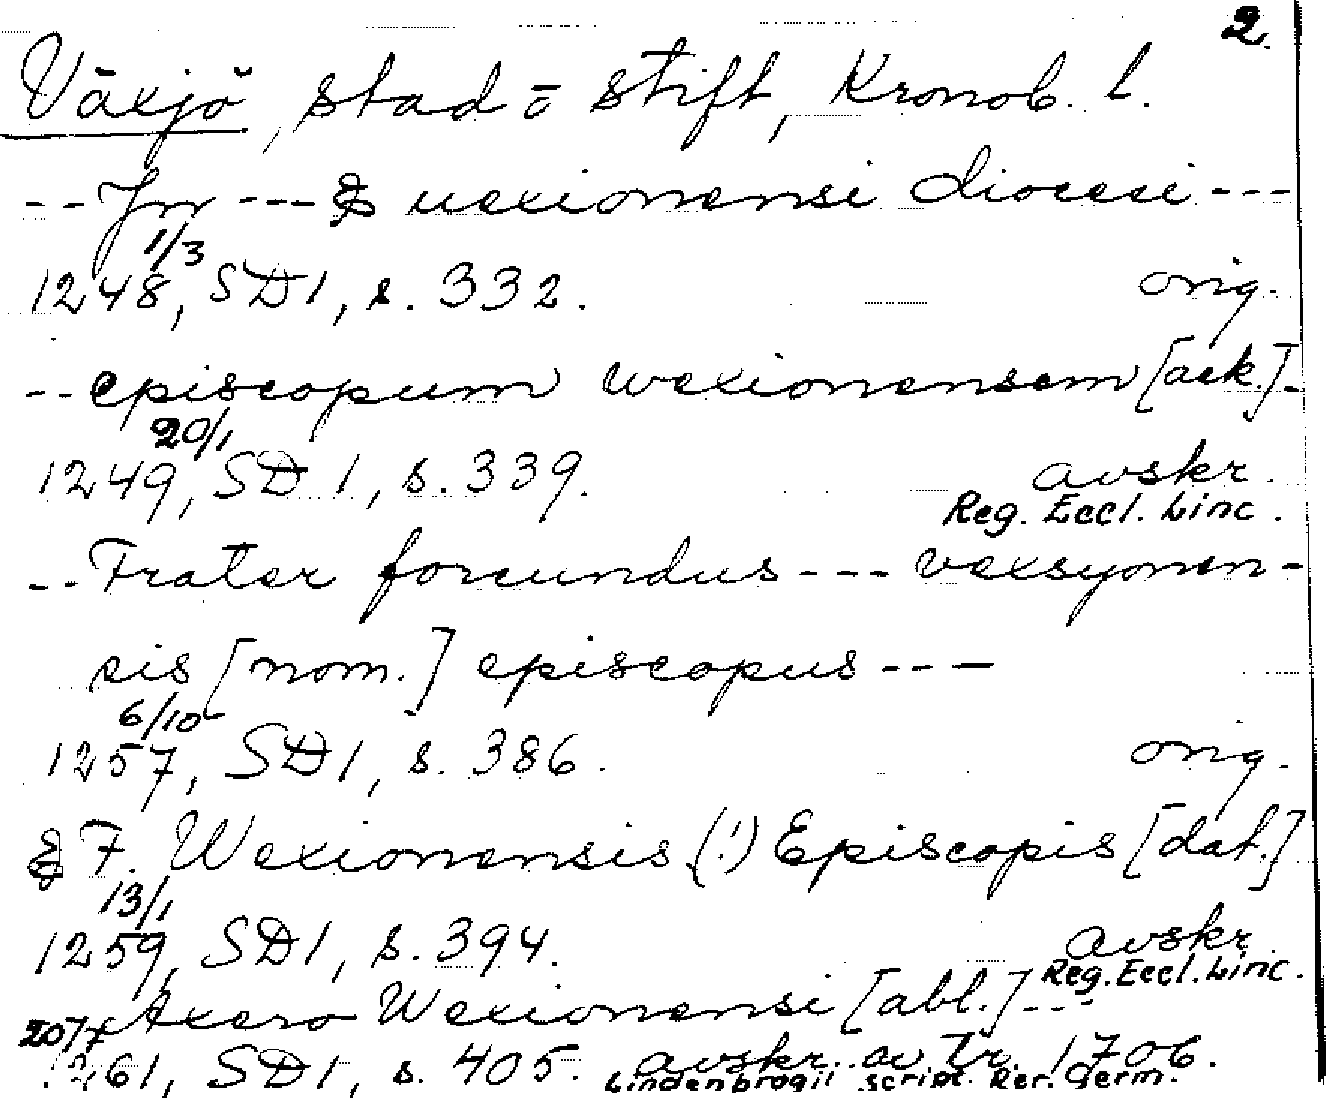 2.
Växjö, stad o stift, Kronob. l.
-- Jn --- & uexionensi diocesi ---
1/3
1248, SD1, s. 332. orig.
-- episcopum wexionensem [ack.] -
20/1
1249, SD 1, s. 339. avskr.
Reg. Eccl. Linc.
-- Frater forcundus --- vexsyonen-
sis [nom.] episcopus ---
6/10
1257, SD1, s. 386. orig.
& F. Wexionensis (!) Episcopis [dat.]
13/1
1259, SD1, s. 394. avskr.
Reg. Eccl. Linc.
Axero Wexionensi [abl.] ---
20/7
1261, SD1, s. 405. avskr. av Tr. 1706.
Lindenbrogii script. Rer. Germ.